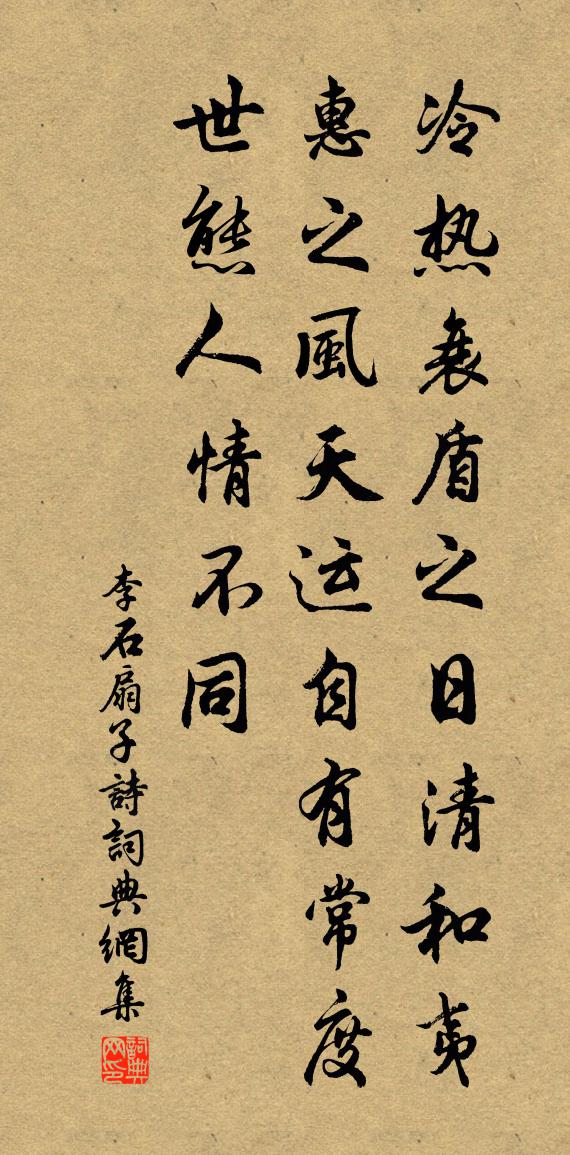 冷热衰盾之日清和夷
惠之風天运自有常度
世態人情不同
李石扇子詩詞典網集
詞典网印